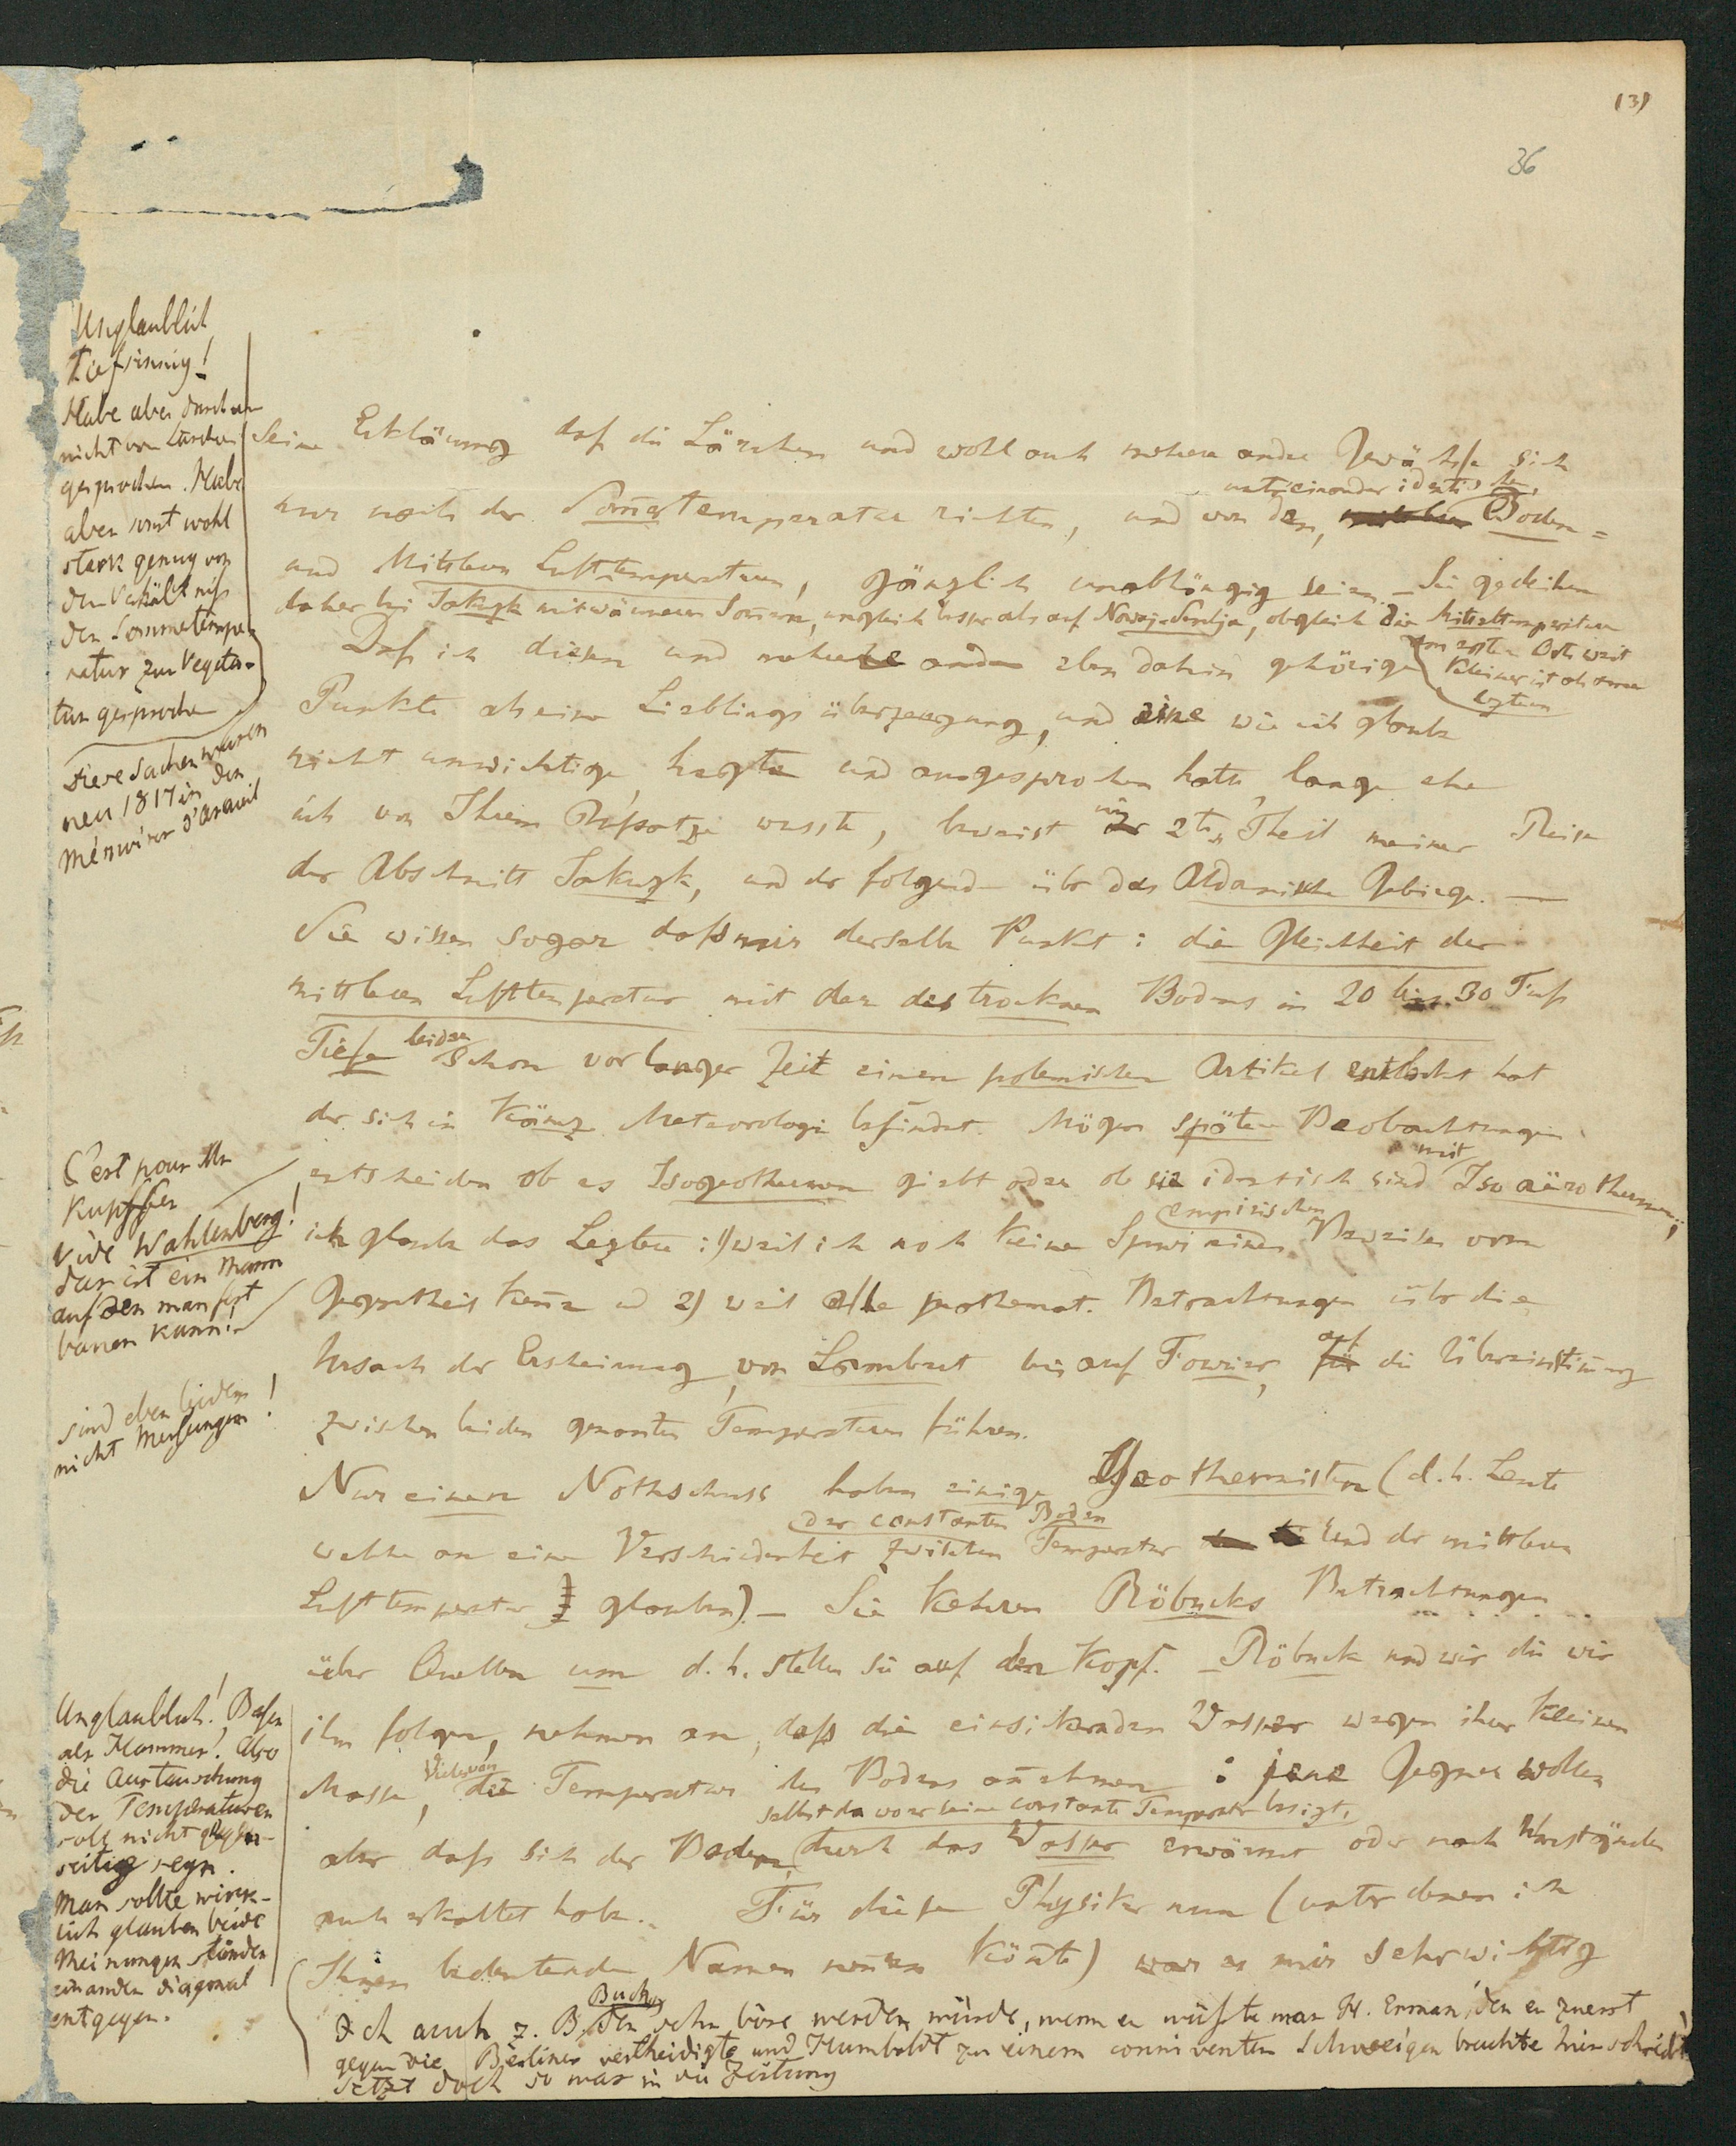 (3)
36
Unglaublich
tiefsinnig!
Habe aber durchaus
nicht von Lärchen
gesprochen. Habe
aber sonst wohl
stark genug von
dem Verhältniss
der Sommertempe-
ratur zur Vegeta-
tion gesprochen
Diese Sachen waren
neu 1817 in den
Mémoires d'Arcueil
Seine Erklärung daß die Lärchen und wohl auch mehre andre Gewächse sich
unter einander identischen,
nur nach der Som̅ertemperatur richten, und von den, Boden=
und Mittleren Lufttemperaturen, gänzlich unabhängig seien. – Sie gedeihen
daher bei Jakuzk mit wärmeren Som̅ern, ungleich besser als auf Nowaja-Semlja, obgleich die Mitteltemperatur
am ersten Orte weit
kleiner ist als am
letztern
Daß ich diesen und mehere andre eben dahin gehörige
Punkte als eine Lieblings überzeugung, und eine wie ich glaube
nicht unwichtige, hegte und ausgesprochen hatte, lange ehe
ich von Ihrem Aufsatze wusste, beweist im 2ten Theil meiner Reise
der Abschnitt Jakuzk, und der folgende über das Aldanische Gebirge. —
Sie wissen sogar daß mir derselbe Punkt: die Gleichheit der
mittleren Lufttemperatur mit der des trocknen Bodens in 20 bis 30 Fuß
Tiefe leider schon vor langer Zeit einen polemischen Artikel entlockt hat
der sich in Kämz Meteorologie befindet. Mögen spätere Beobachtungen
C'est pour Mr
Kupffer
vide Wahlenberg!
das ist ein Mann
auf den man fest
bauen kann!
entscheiden ob es Isogeothermen giebt oder ob sie identisch sind mit Iso aërothermen;
ich glaube das Leztere: 1) weil ich noch keine Spur eines empirischen Beweises vom
Gegentheil kenne und 2) weil alle mathemat. Betrachtungen über die
Ursach der Erscheinung, von Lambert bis auf Fourier, auf die Übereinstim̅ung
zwischen beiden genanten Temperaturen führen.
sind eben leider
nicht Messungen!
Nur einen Nothschuss haben einige Geothermisten (d. h. Leute
welche an eine Verschiedenheit zwischen der constanten Boden Temperatur und der mittleren
Lufttemperatur glauben). – Sie kehren Röbucks Betrachtungen
über Quellen um d. h. stellen sie auf den Kopf. – Röbuck und wir die wir
ihm folgen, nehmen an, daß die einsikernden Wasser wegen ihrer kleinen
Masse, die Temperatur des Bodens an̅ehmen: jene Gegner wollen
aber daß sich der Boden, selbst da wo er keine constante Temperatur besizt, durch das Wasser erwärmt oder nach Umständen
auch erkaltet habe. Für diese Physiker nun (unter denen ich
Ihnen bedeutende Namen nen̅en kön̅te) war es mir sehr wichtig
Unglaublich! Busen
als Hammer! Also
die Austauschung
der Temperaturen
soll nicht gegen-
seitig seyn.
Man sollte wirck-
lich glauben beide
Meinungen stünden
einander diagonal
entgegen.
Ich auch z. B. Buch, der sehr böse werden würde, wenn er wüßte was Hr. Erman, den er zuerst
gegen die Berliner vertheidigte und Humboldt zu einem conniventen Schweigen brachte hier schreibt
Setzt doch so was in die Zeitung